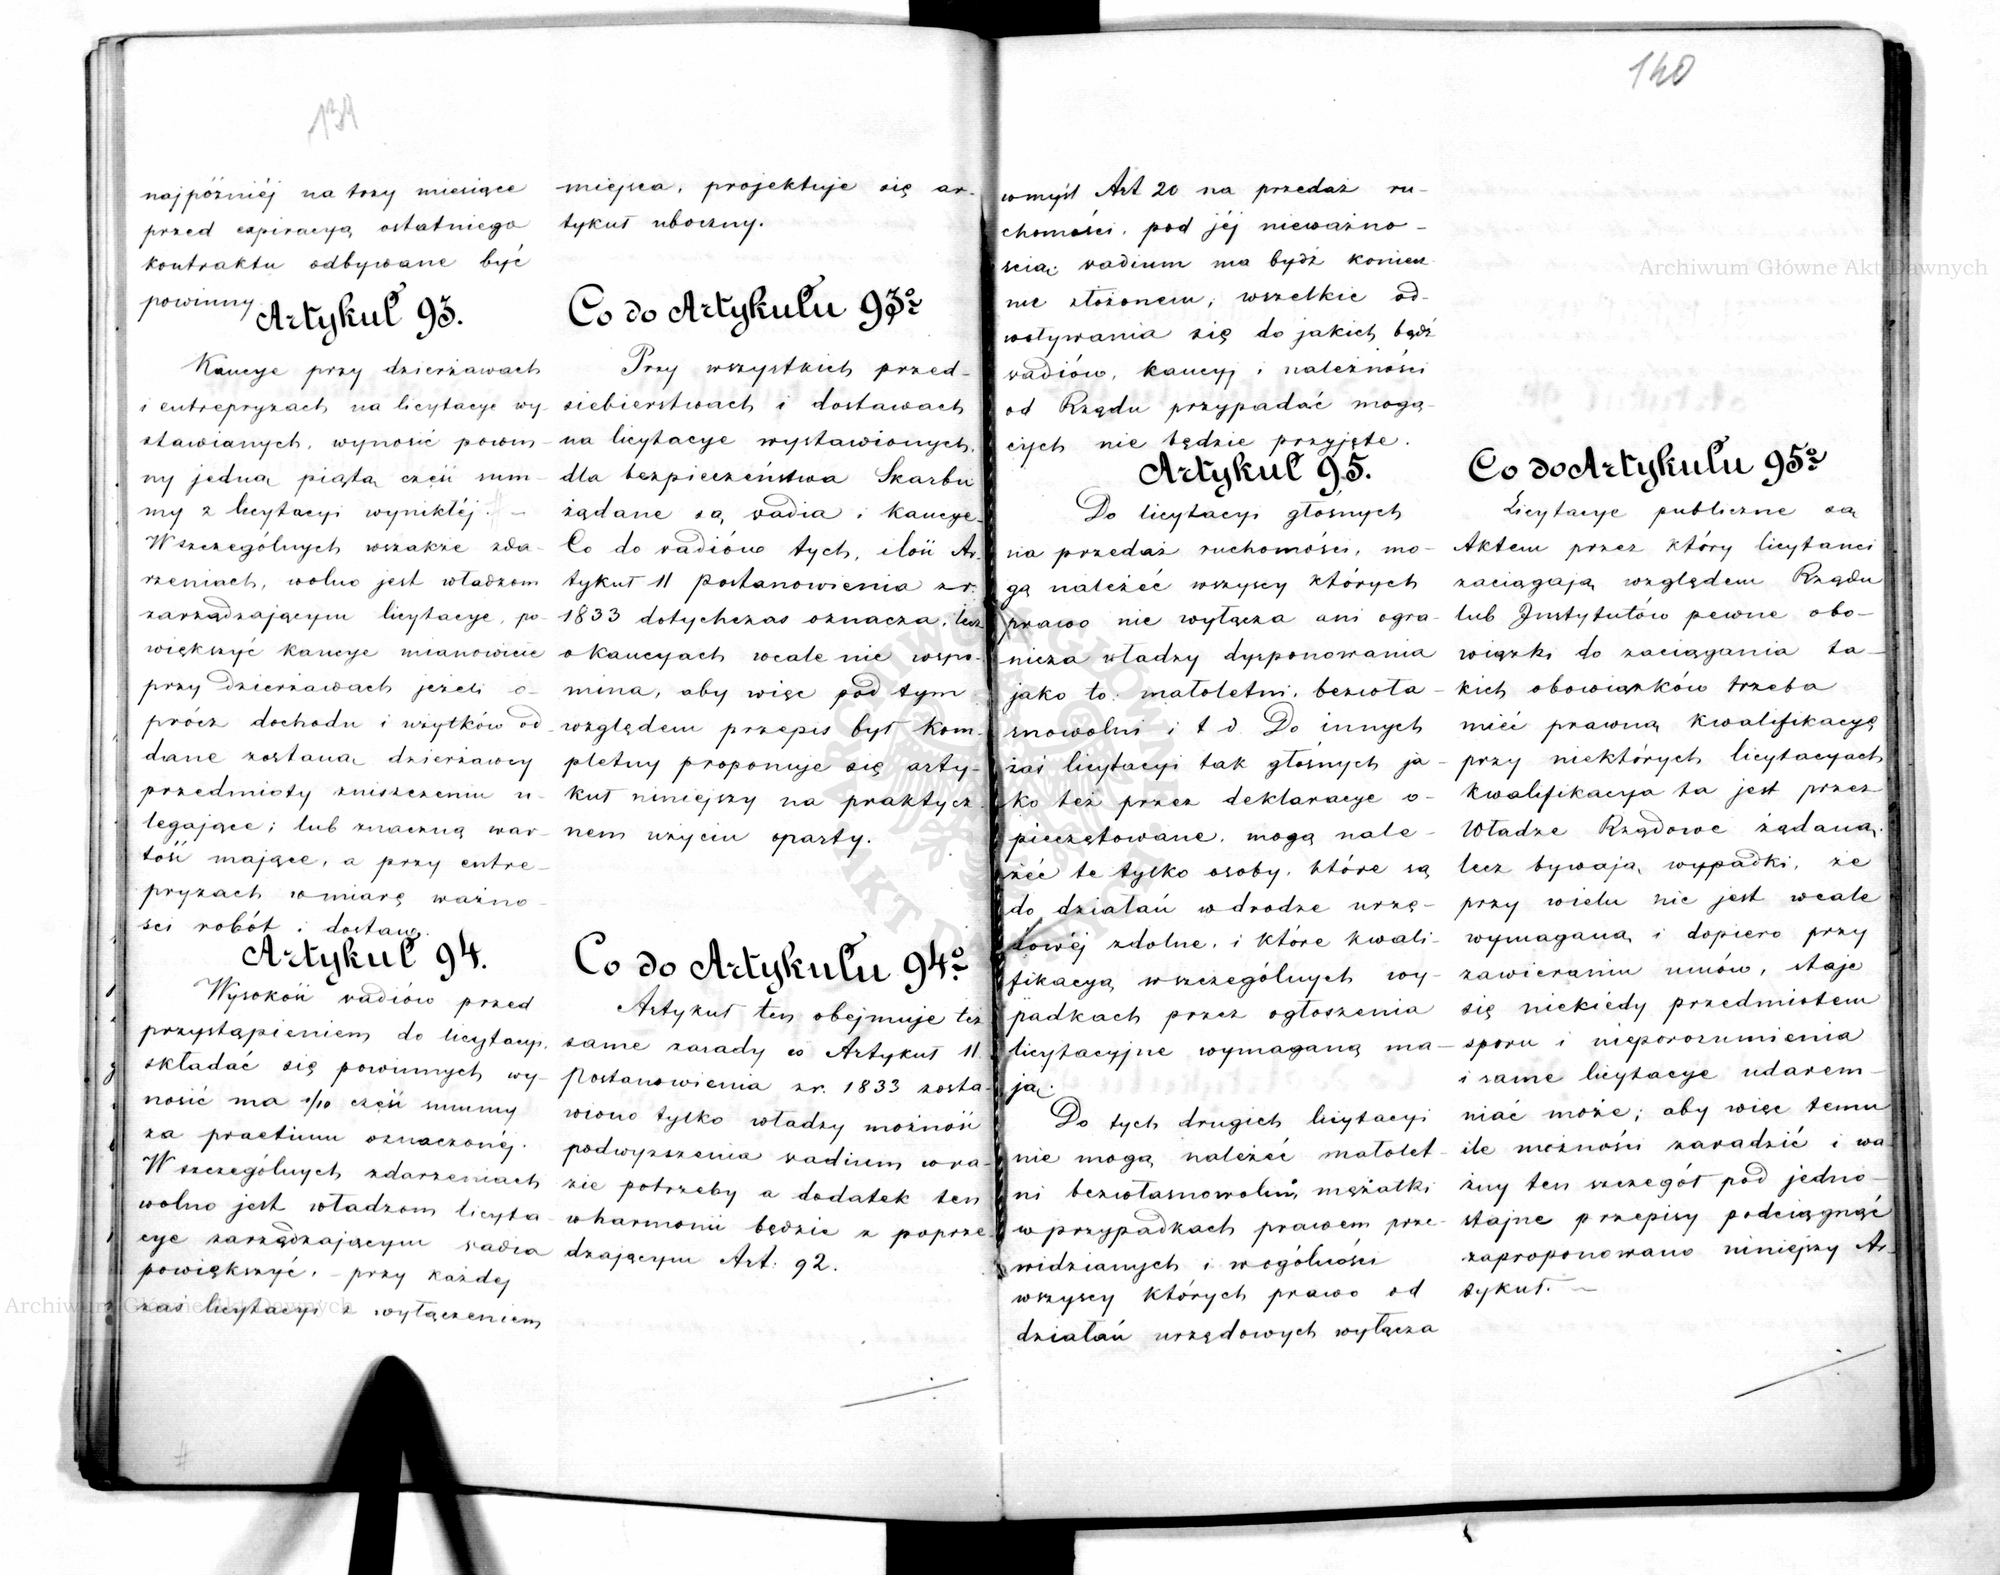 139
najpóźniéj na trzy miesiące
przed expiracyą ostatniego
kontraktu odbywane być
powinny
Artykuł 93.
Kaucye przy dzierżawach
i entrepryzach na licytacye wy-
stawianych, wynosić powin-
ny jedną piątą częś́ć sum-
my z licytacyi wynikłéj. –
W szczególnych wszakże zda-
rzeniach, wolno jest władzom
zarządzającym licytacye, po-
większyć kaucye mianowicie
przy dzierżawach jeżeli o-
prócz dochodu i użytków od
dane zostaną dzierżawcy
przedmioty zniszczeniu u-
legające; lub znaczną war-
tość mające, a przy entre-
pryzach w miarę ważno-
ści robót i dostaw.
Artykuł 94.
Wysokość vadiów przed
przystąpieniem do licytacyi,
składać się powinnych wy-
nosić ma 1/10 część summy
za praetium oznaczonéj.
W szczególnych zdarzeniach
wolno jest władzom licyta-
cye zarządzającym vadia
powiększyć, – przy każdej
zaś licytacyi z wyłączeniem
miejsca, projektuje się ar-
tykuł uboczny.
Co do Artykułu 93º
Przy wszystkich przed-
siebierstwach i dostawach
na licytacye wystawionych,
dla bezpieczeństwa Skarbu
żądane są, vadia i kaucye.
Co do vadiów tych, ilość Ar-
tykuł 11 Postanowienia z r.
1833 dotychczas oznacza, lecz
o kaucyach wcale nie wspo-
mina, aby więc pod tym
względem przepis był kom-
pletny proponuje się arty-
kuł niniejszy na praktycz-
nem użyciu oparty.
Co do Artykułu 94º
Artykuł ten obejmuje też
same zasady co Artykuł 11.
Postanowienia z r. 1833 zosta-
wiono tylko władzy możność
podwyższenia vadium w ra-
zie potrzeby a dodatek ten
w harmonii będzie z poprze-
dzającym Art. 92.
140
w myśl Art 20 na przedaż ru-
chomości, pod jéj nieważno-
ścią vadium ma bydź koniecz
nie złożonem; wszelkie od-
woływania się do jakich bądź
vadiów, kaucyj i należności
od Rządu przypadać mogą-
cych nie będzie przyjęte.
Artykuł 95.
Do licytacyi głośnych
na przedaż ruchomości, mo-
gą należéć wszyscy których
prawo nie wyłącza ani ogra-
nicza władzy dysponowania
jako to: małoletni, bezwła-
snowolni i t d. Do innych
zaś licytacyi tak głośnych ja-
ko też przez deklaracye o-
pieczętowane, mogą nale-
żéć te tylko osoby, które są
do działań w drodze urzę-
dowéj zdolne, i które kwali-
fikacyą w szczególnych wy-
padkach przez ogłoszenia
licytacyjne wymaganą ma-
ją.
Do tych drugich licytacyi
nie mogą należéć małolet-
ni bezwłasnowolni, mężatki
w przypadkach prawem prze-
widzianych i w ogólności
wszyscy których prawo od
działań urzędowych wyłącza
Co do Artykułu 95º
Licytacye publiczne są
Aktem przez który licytanci
zaciągają względem Rządu
lub Instytutów pewne obo-
wiązki do zaciągania ta-
kich obowiązków trzeba
mieć prawną kwalifikacyę
przy niektórych licytacyach
kwalifikacya ta jest przez
Władze Rządowe żądaną,
lecz bywają, wypadki, że
przy wielu nie jest wcale
wymaganą i dopiero przy
zawieraniu umów, staje
się niekiedy przedmiotem
sporu i nieporozumienia
i same licytacye udarem-
niać może; aby więc temu
ile możności zaradzić i wa
żny ten szczegół pod jedno-
stajne przepisy podciągnąć
zaproponowano niniejszy Ar-
tykuł. –
Archiwum Główne Akt Dawnych
Archiwum Główne Akt Dawnych